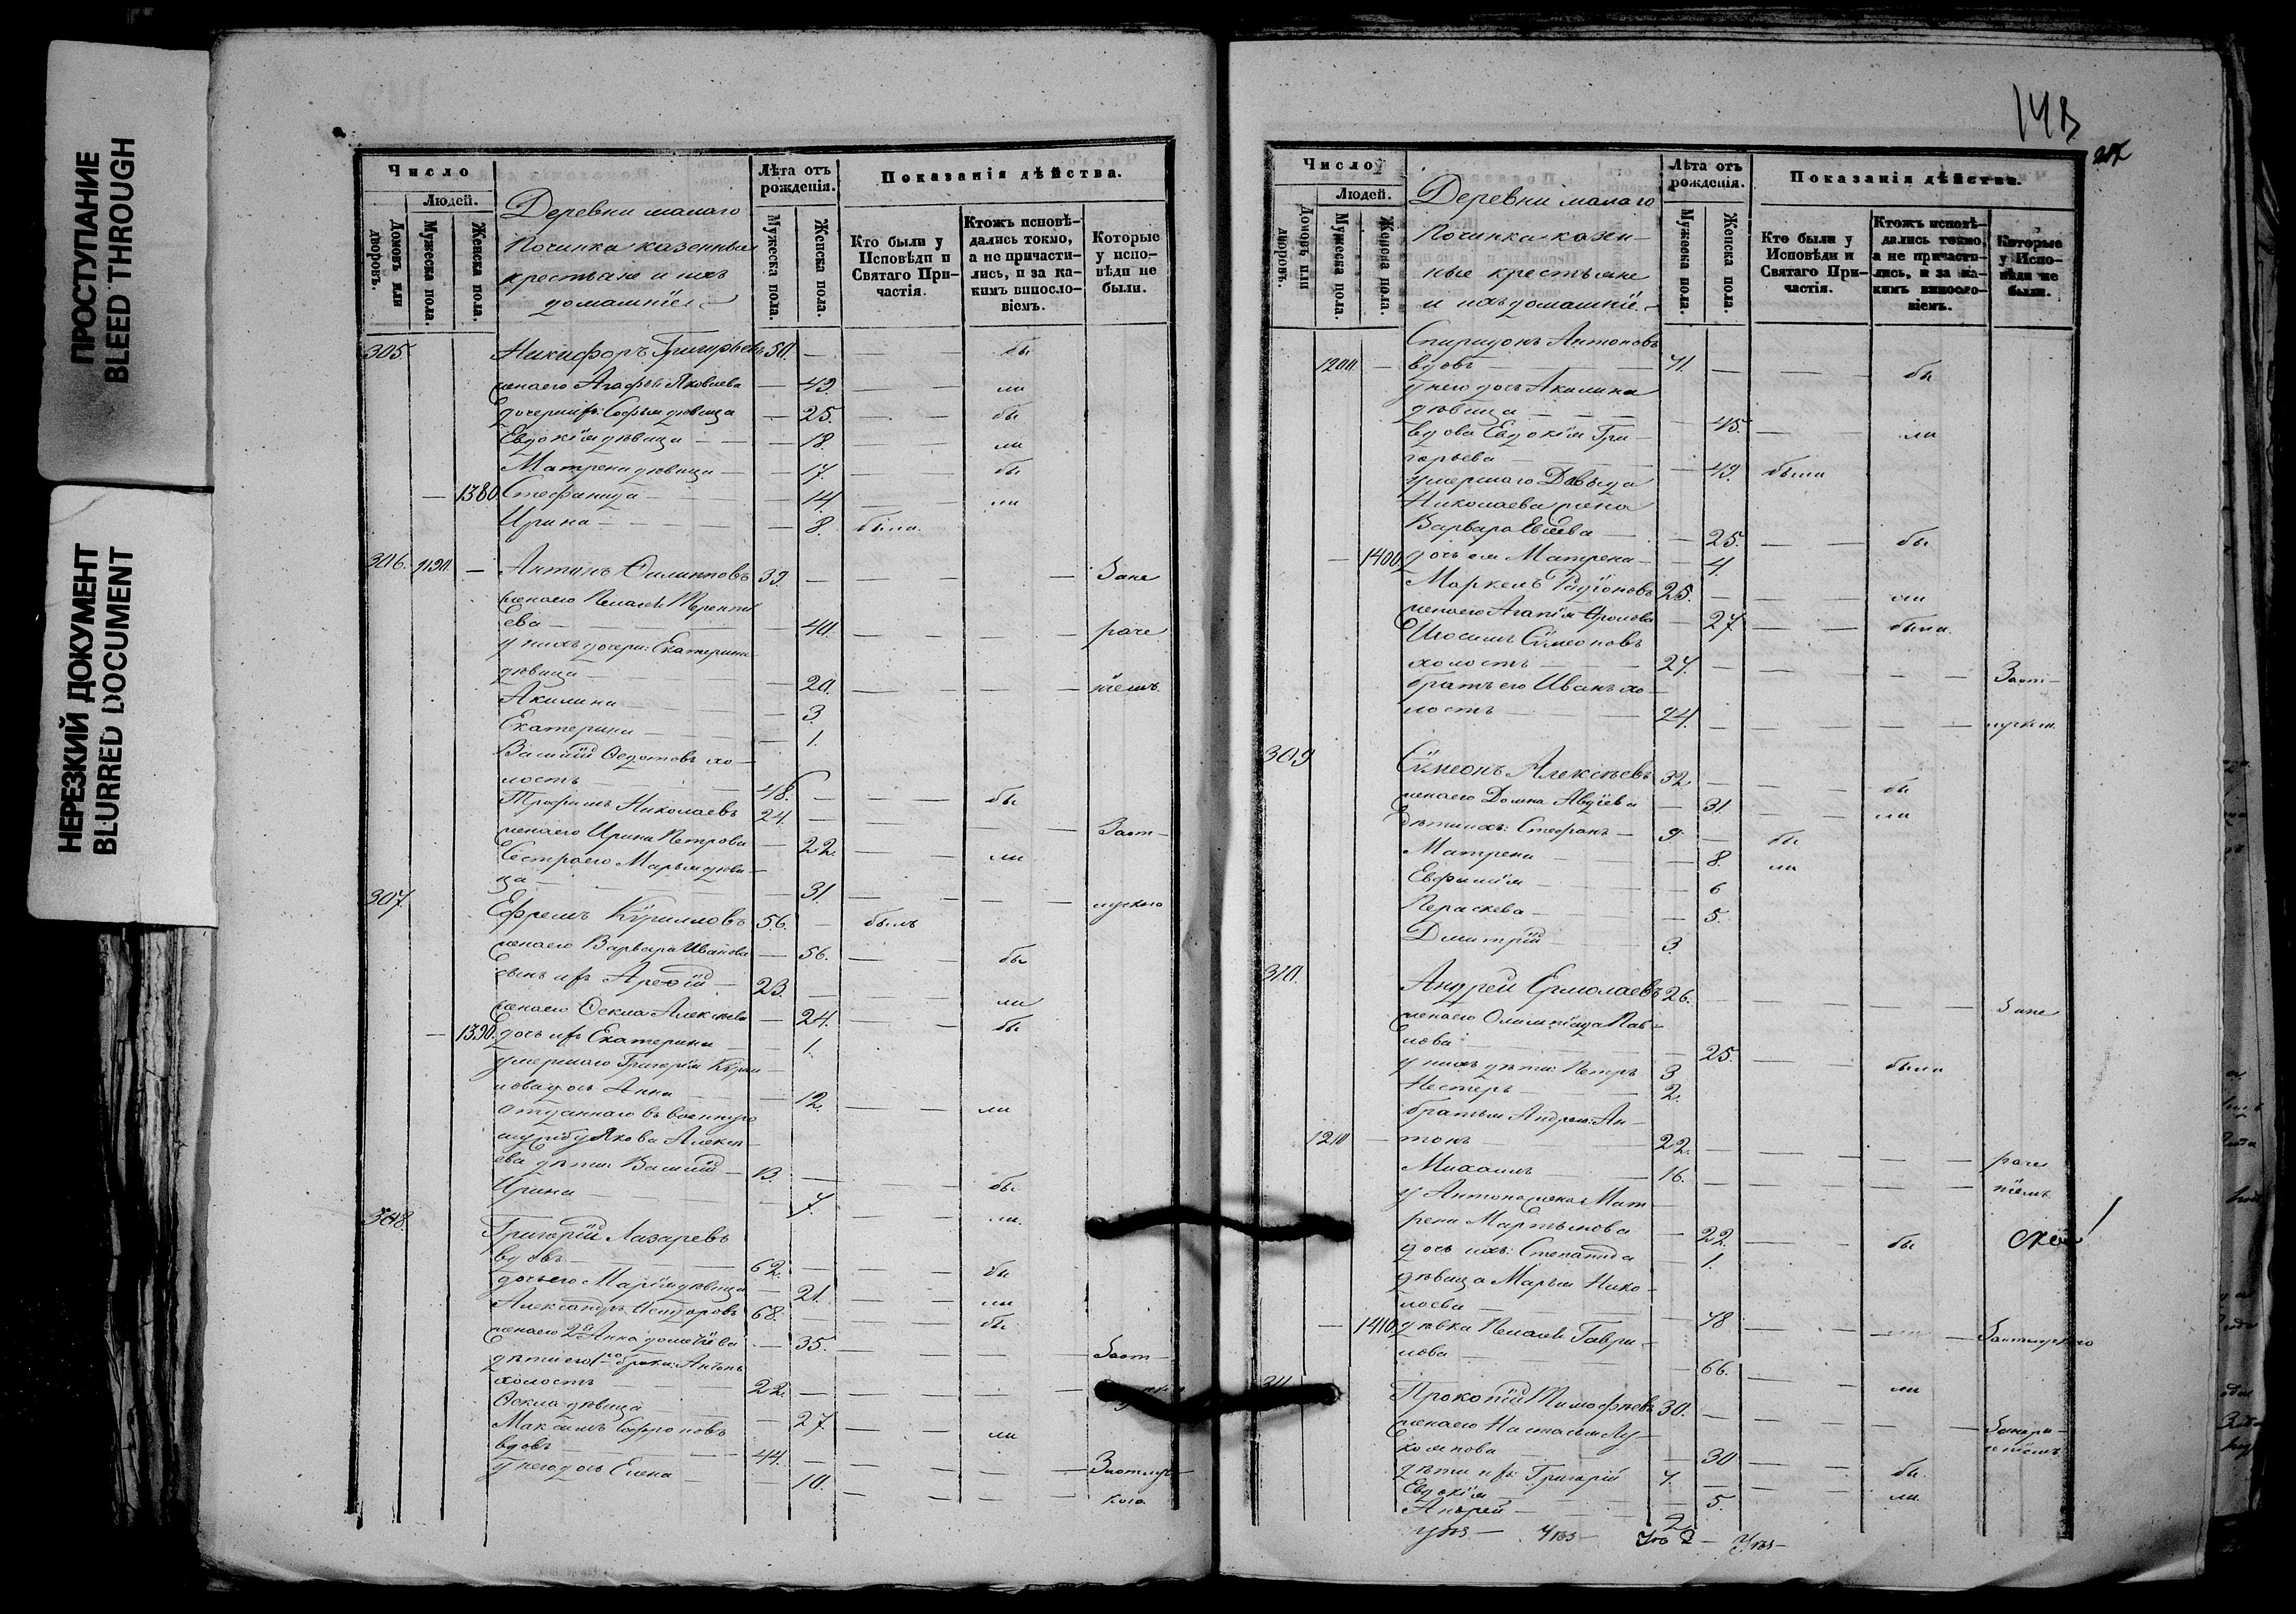 ПРОСТУПАНИЕ
BLEED THROUGH
НЕРЕЗКИЙ ДОКУМЕНТ
BLURRED DOCUMENT
Число
Людей.
Домовъ или дворовъ.
Мужеска пола.
Женска пола.
Деревни малаго
Починка казенныя
крестьяне и ихъ
домашніе
Лѣта отъ рожденія.
Мужеска пола.
Женска пола.
Показанія дѣйства.
Кто были у Исповѣди и Святаго Причастія.
Ктожъ исповѣдались токмо, а не причастились, и за какимъ винословіемъ.
Которые у исповѣди не были.
305 Никифоръ Григорьевъ 50. — — бы
жена его Агафья Яковлева — 49. — — ли
дочери ихъ: Софья дѣвица — 25. — — бы
Евдокія дѣвица — 18. — — ли
Матрена дѣвица — 17. — — бы
— 1380. Стефанида — 14 — — ли
Ирина — 8. была.
306. 1190. — Антонъ Филиповъ 39. — — — Зане
жена его Пелагея Терентіева — 40. — — — раче
у нихъ дочери: Екатерина
дѣвица — 20. — — — ніемъ.
Акилина — 3.
Екатерина — 1.
Василій Федотовъ холостъ 48. — — — бы
Трофимъ Николаевъ 24. — — — Заот-
жена его Ирина Петрова — 22. — — ли
Сестра его Марья дѣвица — 31. — — — лучкою
307. Ефремъ Кѵрилловъ 56. — былъ
жена его Варвара Иванова — 56. — — бы
сынъ ихъ Арефій — 23. — — ли
жена его Фекла Алексѣева — 24. — — бы
— 1390. дочь ихъ Екатерина — 1.
умершаго Григорія Кѵрилова дочь Анна — 12. — — ли
отданнаго въ военную
службу Якова Алексѣева дѣти: Василій — 13. — — бы
Ирина — 7. — — ли.
308. Григорій Лазаревъ
вдовъ — 62. — — бы
дочь его Марія дѣвица — 21. — — ли
Александръ Исидоровъ 68. — — бы
жена его 2я Анна — 35. — — — Заот-
дѣти его 1го брака: Антонъ
холостъ — 22. — — —
Фекла дѣвица — 27. — — ли
Максимъ Софроновъ
вдовъ — 44. — — — Заотлуч-
у него дочь Елена — 10. — — — кою.
148
Число
Людей.
Домовъ или дворовъ.
Мужеска пола.
Женска пола.
Деревни малаго
Починка казен-
ные крестьяне
и ихъ домашніе.
Лѣта отъ рожденія.
Мужеска пола.
Женска пола.
Показанія дѣйства.
Кто были у Исповѣди и Святаго Причастія.
Ктожъ исповѣдались токмо, а не причастились, и за какимъ винословіемъ.
Которые у Исповѣди не были.
Спиридонъ Антоновъ
1200. — вдовъ — 71. — — — бы
у него дочь Акилина
дѣвица — 45. — — ли
вдова Евдокія Григорьева — 49. была
умершаго Давыда
Николаева жена
Варвара — 25. — — бы
— 1400. дочь ея Матрена — 4.
Маркелъ Родіоновъ 25. — — ли
жена его Агапія — 27. — — были.
Сѵмеоновъ
холостъ — 27. — — — Заот-
братъ его Иванъ холостъ — 24. — — — лучкою.
309 Сѵмеонъ Алексѣевъ 32. — — бы
жена его Домна Авдіева — 31. — — ли
дѣти ихъ: Стефанъ — 9. — бы
Матрена — 8. ли
Евфимія — 6
Параскева — 5.
Дмитрій — 3.
310. Андрей Ермолаевъ 26. — — — Зане
жена его Олимпіада Павлова — 25. — — были
у нихъ дѣти: Петръ 3
Несторъ — 2.
братья Андрея: Ан-
1210 — тонъ — 22. — — — раче
Михаилъ — 16. — — — ніемъ
у Антона жена Мат-
рена Мартынова — 22. — — бы
дочь ихъ: Степанида — 1.
дѣвица Марья Нико-
лаева — 48 — — — Заотлучкою
— 1410. дѣвка Пелагея Гаври-
лова — 66. — — ли
311 Прокопій Тимофѣевъ 30. — — — Занера-
жена его Наталья Лу- ченіемъ
коянова — 30 — — бы.
дѣти ихъ: Григорій 7. — — ли.
Евдокія — 5.
Андрей — 2